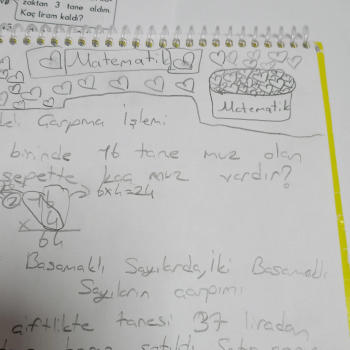 zaktan 3 tane aldım.
Kaç liram kaldı?
Matematik
Matematik
Çarpma İşlemi
birinde 16 tane muz olan
sepette kaç muz vardır?
② 16 6x4=24
x 4
64
Basamaklı Sayılarda, İki Basamaklı
Sayıların çarpımı
çiftlikte tanesi 37 liradan
satıldı